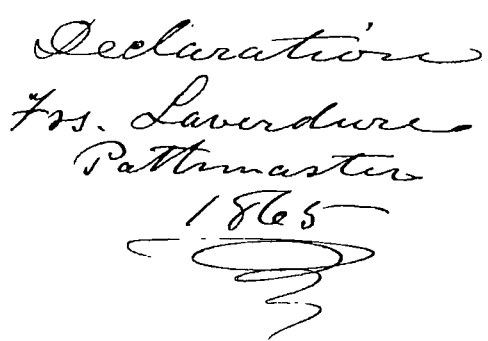 Declaration
Frs. Laverdure
Pathmaster
1865